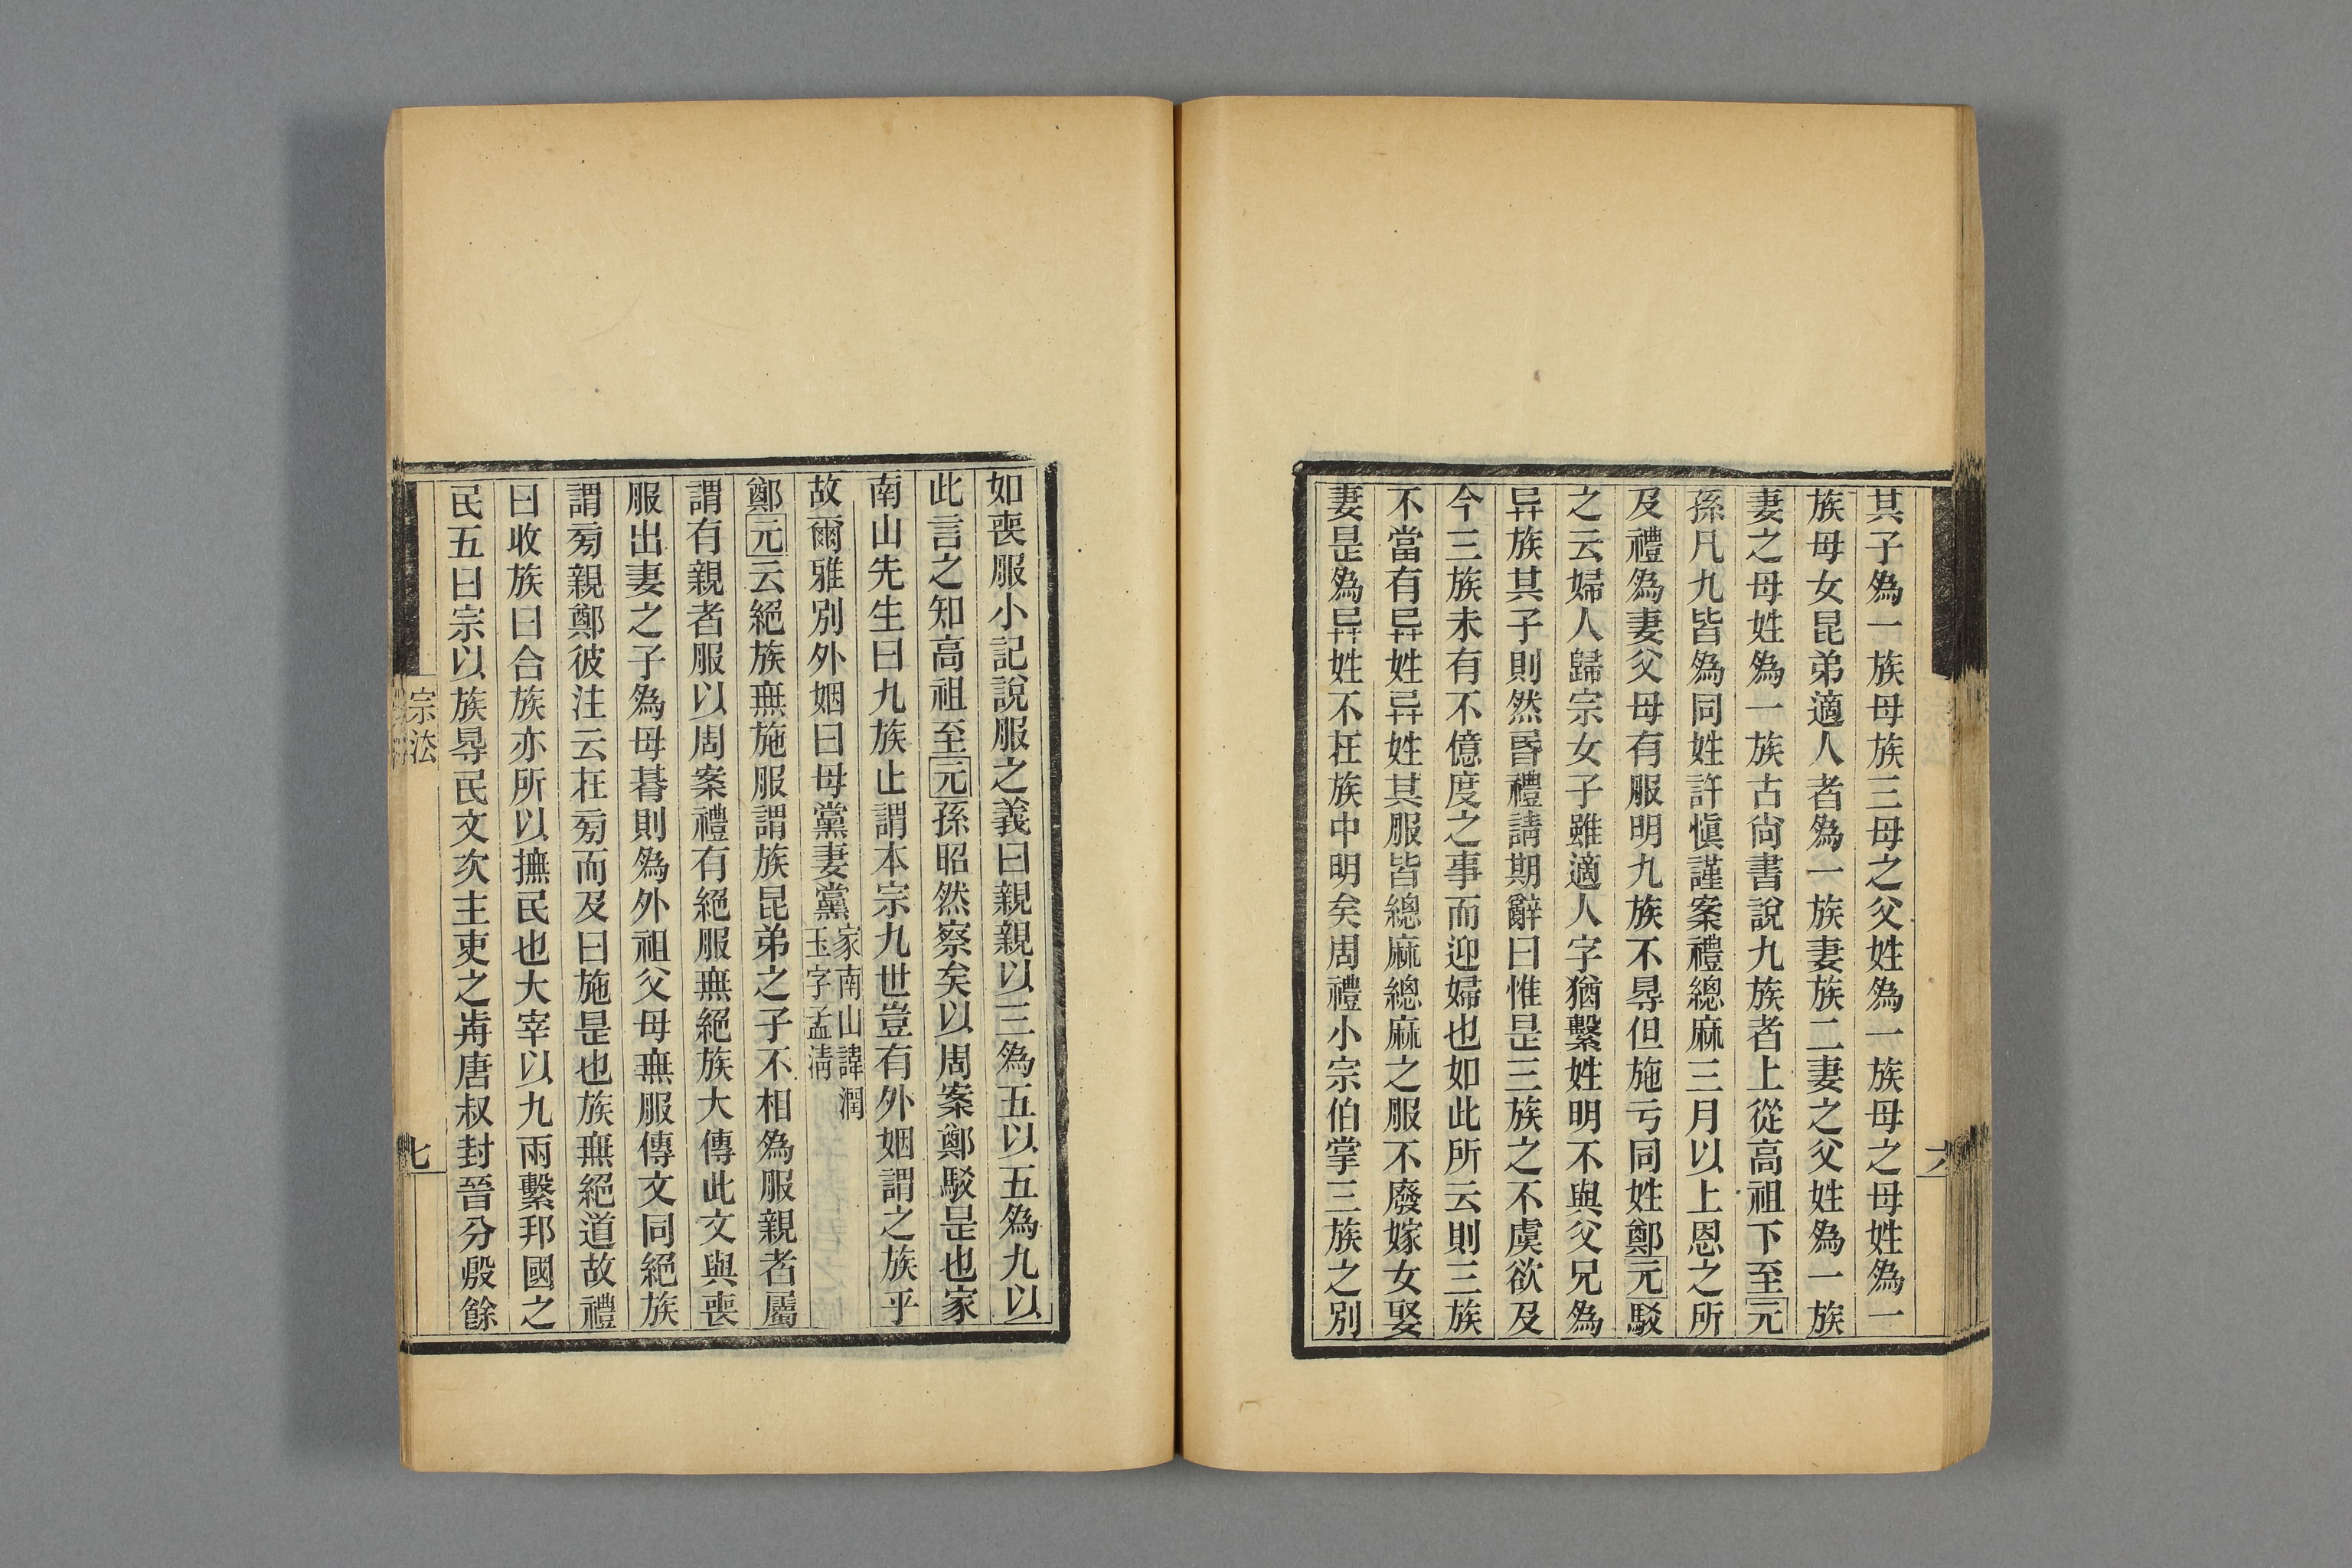 其子爲一族母族三母之父姓爲一族母之母姓爲一
族母女昆弟適人者爲一族妻族二妻之父姓爲一族
妻之母姓爲一族古尙書說九族者上從高祖下至元
孫凡九皆爲同姓許愼謹案禮緦麻三月以上恩之所
及禮爲妻父母有服明九族不㝵但施亏同姓鄭元駁
之云婦人歸宗女子雖適人字猶繫姓明不與父兄爲
异族其子則然昬禮請期辭曰惟昰三族之不虞欲及
今三族未有不億度之事而迎婦也如此所云則三族
不當有异姓异姓其服皆緦麻緦麻之服不廢嫁女娶
妻昰爲异姓不在族中明矣周禮小宗伯掌三族之別
六
如喪服小記說服之義曰親親以三爲五以五爲九以
此言之知高祖至元孫昭然察矣以周案鄭駁昰也家
南山先生曰九族止謂本宗九世豈有外姻謂之族乎
故爾雅別外姻曰母黨妻黨家南山諱潤
玉字孟淸
鄭元云絕族無施服謂族昆弟之子不相爲服親者屬
謂有親者服以周案禮有絕服無絕族大傳此文與喪
服出妻之子爲母朞則爲外祖父母無服傳文同絕族
謂㫄親鄭彼注云在㫄而及曰施昰也族無絕道故禮
曰收族曰合族亦所以撫民也大宰以九兩繫邦國之
民五曰宗以族㝵民文次主吏之歬唐叔封晉分殷餘
宗法
七